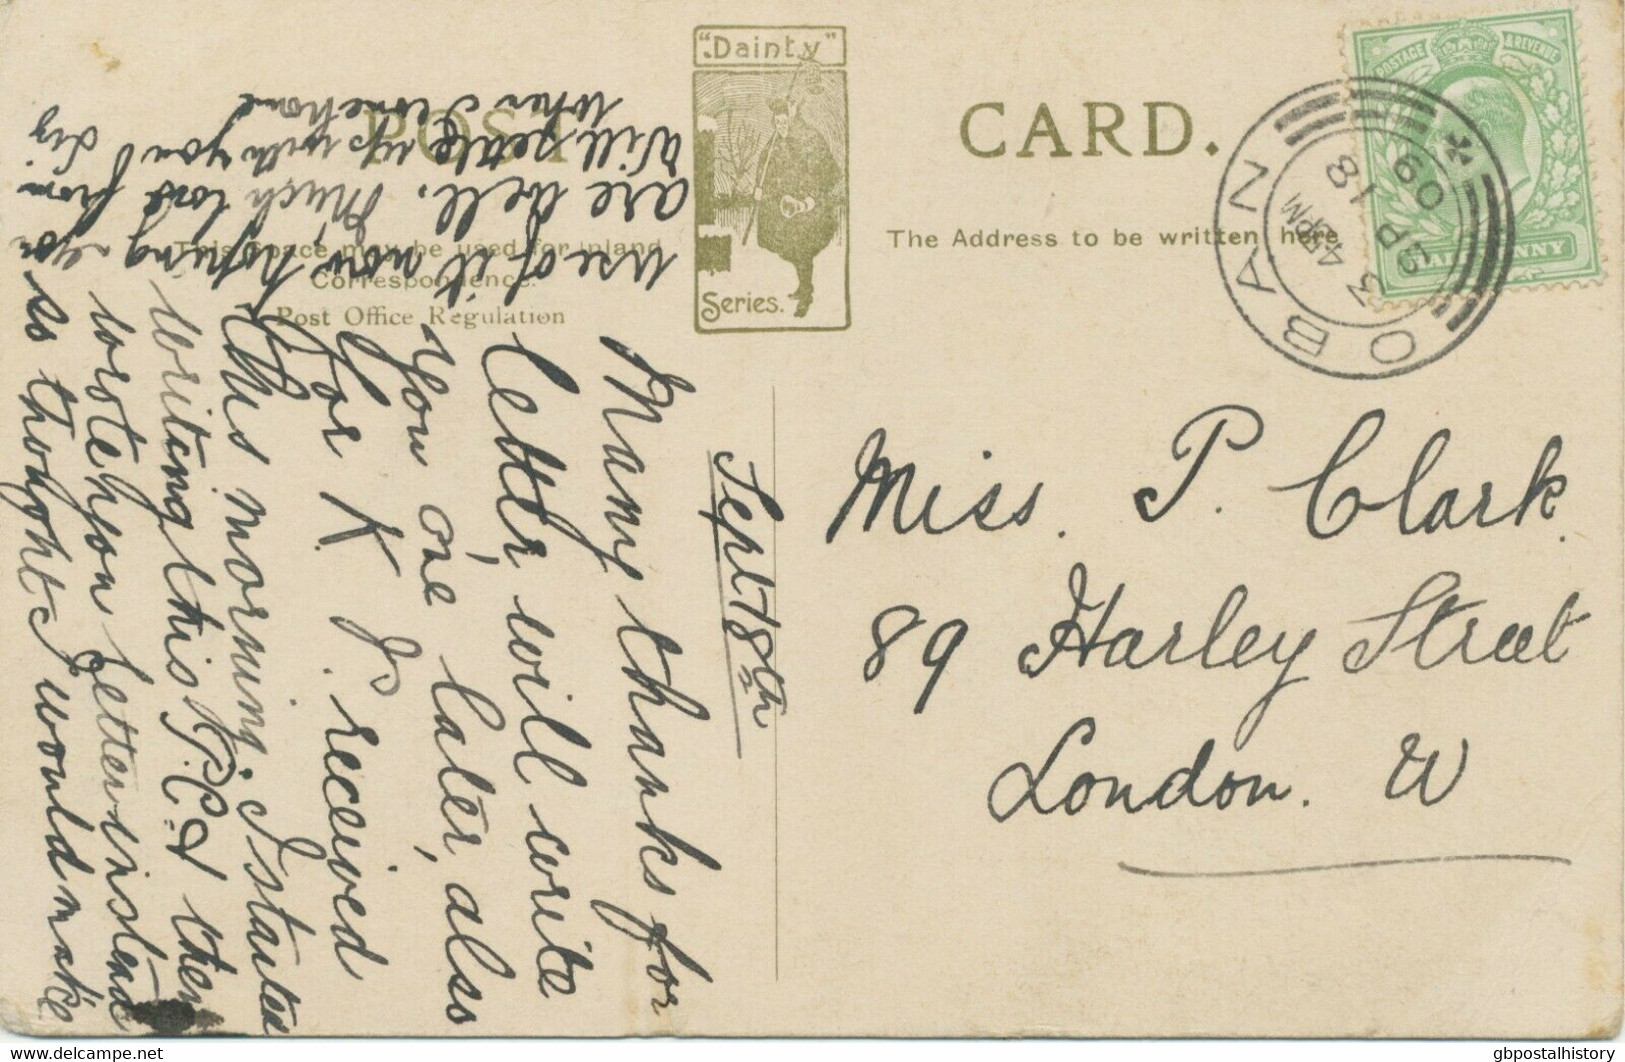 POST
CARD.
"Dainty"
Series.
This Space may be used for inland
Correspondence.
Post Office Regulation
The Address to be written here
POSTAGE & REVENUE
HALFPENNY
OBAN
4 PM
SP 18
09
Miss. P. Clark.
89 Harley Street
London. W
Sept 18th
Many thanks for
letter, will write
you one later, also
for K. I received
this morning. I started
writing this P.C. & then
wrote you letter instead
so thought I would make
use of it now hoping you
are well. Much love from
Will settle up with you Liz
when I come home
gbpostalhistory